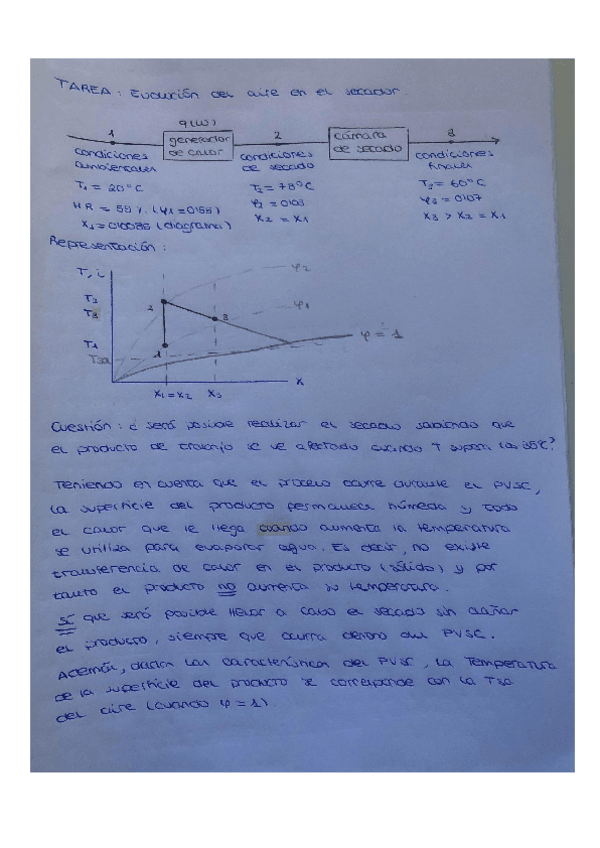 TAREA: Evolución del aire en el secador.
q (W)
1 generador de calor 2 cámara de secado 3
condiciones ambientales
condiciones de secado
condiciones finales
T1 = 20°C
HR = 55% (φ1 = 0'55)
X1 = 0'0085 (diagrama)
T2 = 78°C
φ2 = 0'03
X2 = X1
T3 = 60°C
φ3 = 0'07
X3 > X2 = X1
Representación:
T, i
φ2
T2
2
T3
3
φ1
T1
1
φ = 1
Tsa
X
X1 = X2 X3
Cuestión: ¿será posible realizar el secado sabiendo que
el producto de trabajo se ve afectado cuando T supera los 35°C?
Teniendo en cuenta que el proceso ocurre durante el PVSC,
la superficie del producto permanece húmeda y todo
el calor que le llega cuando aumenta la temperatura
se utiliza para evaporar agua. Es decir, no existe
transferencia de calor en el producto (sólido) y por
tanto el producto no aumenta su temperatura.
Sí que será posible llevar a cabo el secado sin dañar
el producto, siempre que ocurra dentro del PVSC.
Además, dadas las características del PVSC, la Temperatura
de la superficie del producto se corresponde con la Tsa
del aire (cuando φ = 1).